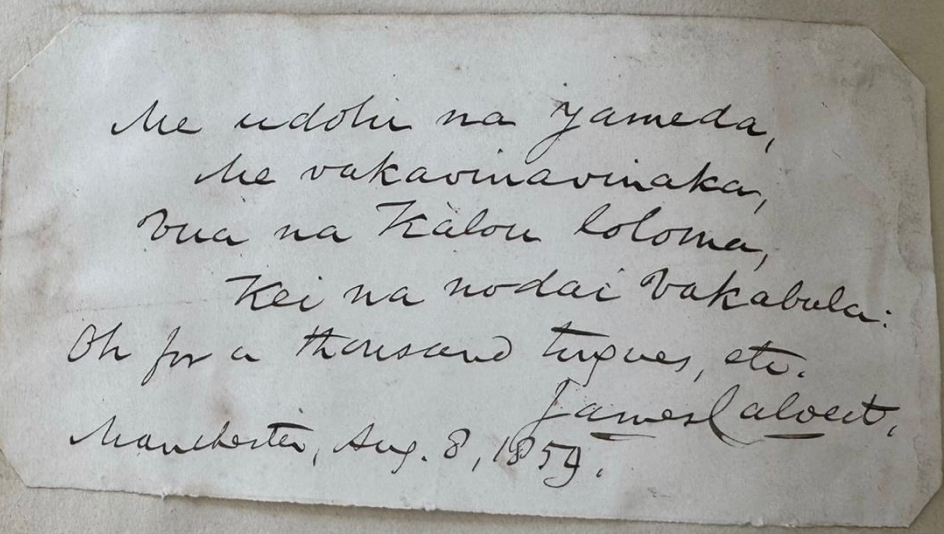 Me udolu na yameda,
Me vakavinavinaka,
Vua na Kalou loloma,
Kei na nodai Vakabula:
Oh for a thousand tngues, etc.
James Calvert.
Manchester, Aug. 8, 1859.